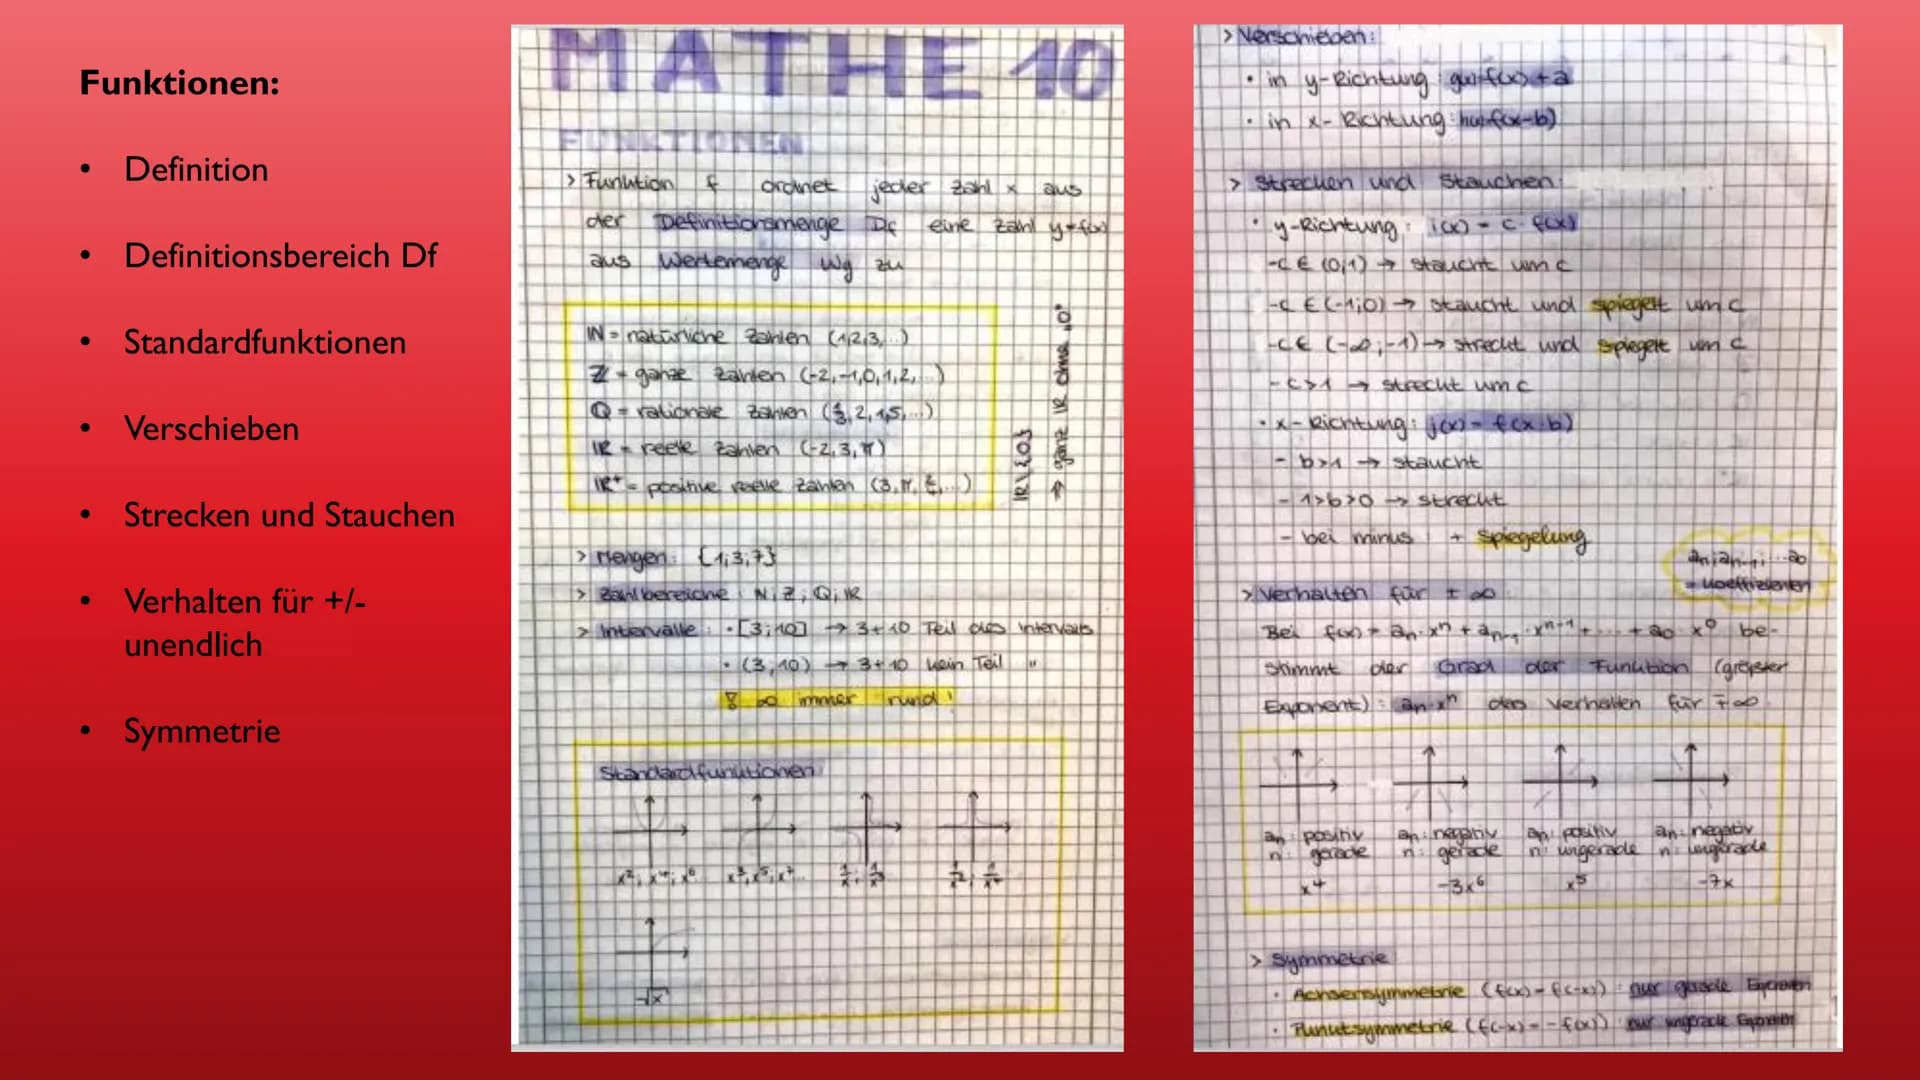 Funktionen:
• Definition
• Definitionsbereich Df
• Standardfunktionen
• Verschieben
• Strecken und Stauchen
• Verhalten für +/-
unendlich
• Symmetrie
MATHE 10
FUNKTIONEN
> Funktion f ordnet jeder Zahl x aus
der Definitionsmenge Df eine Zahl y=f(x)
aus Wertemenge Wg zu
IN = natürliche Zahlen (1,2,3,...)
Z = ganze Zahlen (-2,-1,0,1,2,...)
Q = rationale Zahlen (2, 1,5,...)
IR = reelle Zahlen (-2,3,π)
IR⁺ = positive reelle Zahlen (3,π,...)
IR\{0}
→ ganz IR ohne "0"
> Mengen: {1;3;7}
> Zahlbereiche: N; Z; Q; IR
> Intervalle: • [3;10] → 3+10 Teil des Intervalls
• (3;10) → 3+10 kein Teil "
∞ immer rund!
Standardfunktionen
x², x⁴, x⁶ x³, x⁵, x⁷...
1/x, 1/x³ 1/x², 1/x⁴
√x
> Verschieben:
• in y-Richtung: g(x)=f(x)+a
• in x-Richtung: h(x)=f(x-b)
> Strecken und Stauchen:
• y-Richtung: i(x) = c·f(x)
-c∈(0;1) → staucht um c
-c∈(-1;0) → staucht und spiegelt um c
-c∈(-∞;-1) → streckt und spiegelt um c
-c>1 → streckt um c
• x-Richtung: j(x) = f(x·b)
- b>1 → staucht
- 1>b>0 → streckt
- bei minus: + Spiegelung
an; an-1; ... a0
= Koeffizienten
> Verhalten für ±∞
Bei f(x) = an·xⁿ + an-1·xⁿ⁻¹ + ... + a0·x⁰ be-
stimmt der Grad der Funktion (größter
Exponent): an·xⁿ das Verhalten für ∓∞
an: positiv an: negativ an: positiv an: negativ
n: gerade n: gerade n: ungerade n: ungerade
x⁴ -3x⁶ x⁵ -7x
> Symmetrie
• Achsensymmetrie (f(x)=f(-x)): nur gerade Exponenten
• Punktsymmetrie (f(-x)=-f(x)): nur ungerade Exponenten